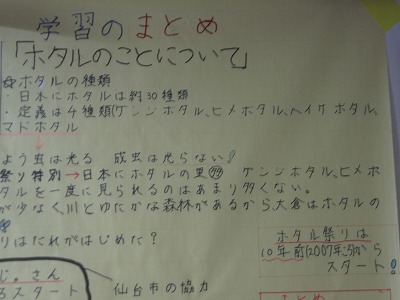 学習のまとめ
「ホタルのことについて」
ホタルの種類
・日本にホタルは約30種類
・定義は4種類(ゲンジボタル、ヒメボタル、ヘイケボタル、
マドボタル
よう虫は光る 成虫は光らない!
祭り特別→日本にホタルの里 ゲンジボタル、ヒメボ
タルを一度に見られるのはあまり多くない。
が少なく、川とゆたかな森林があるから、大倉はホタルの
りはだれがはじめた?
ホタル祭りは
10年前(2007年ごろ)から
スタート!
じ。さん
るスタート
仙台市の協力
まとめ